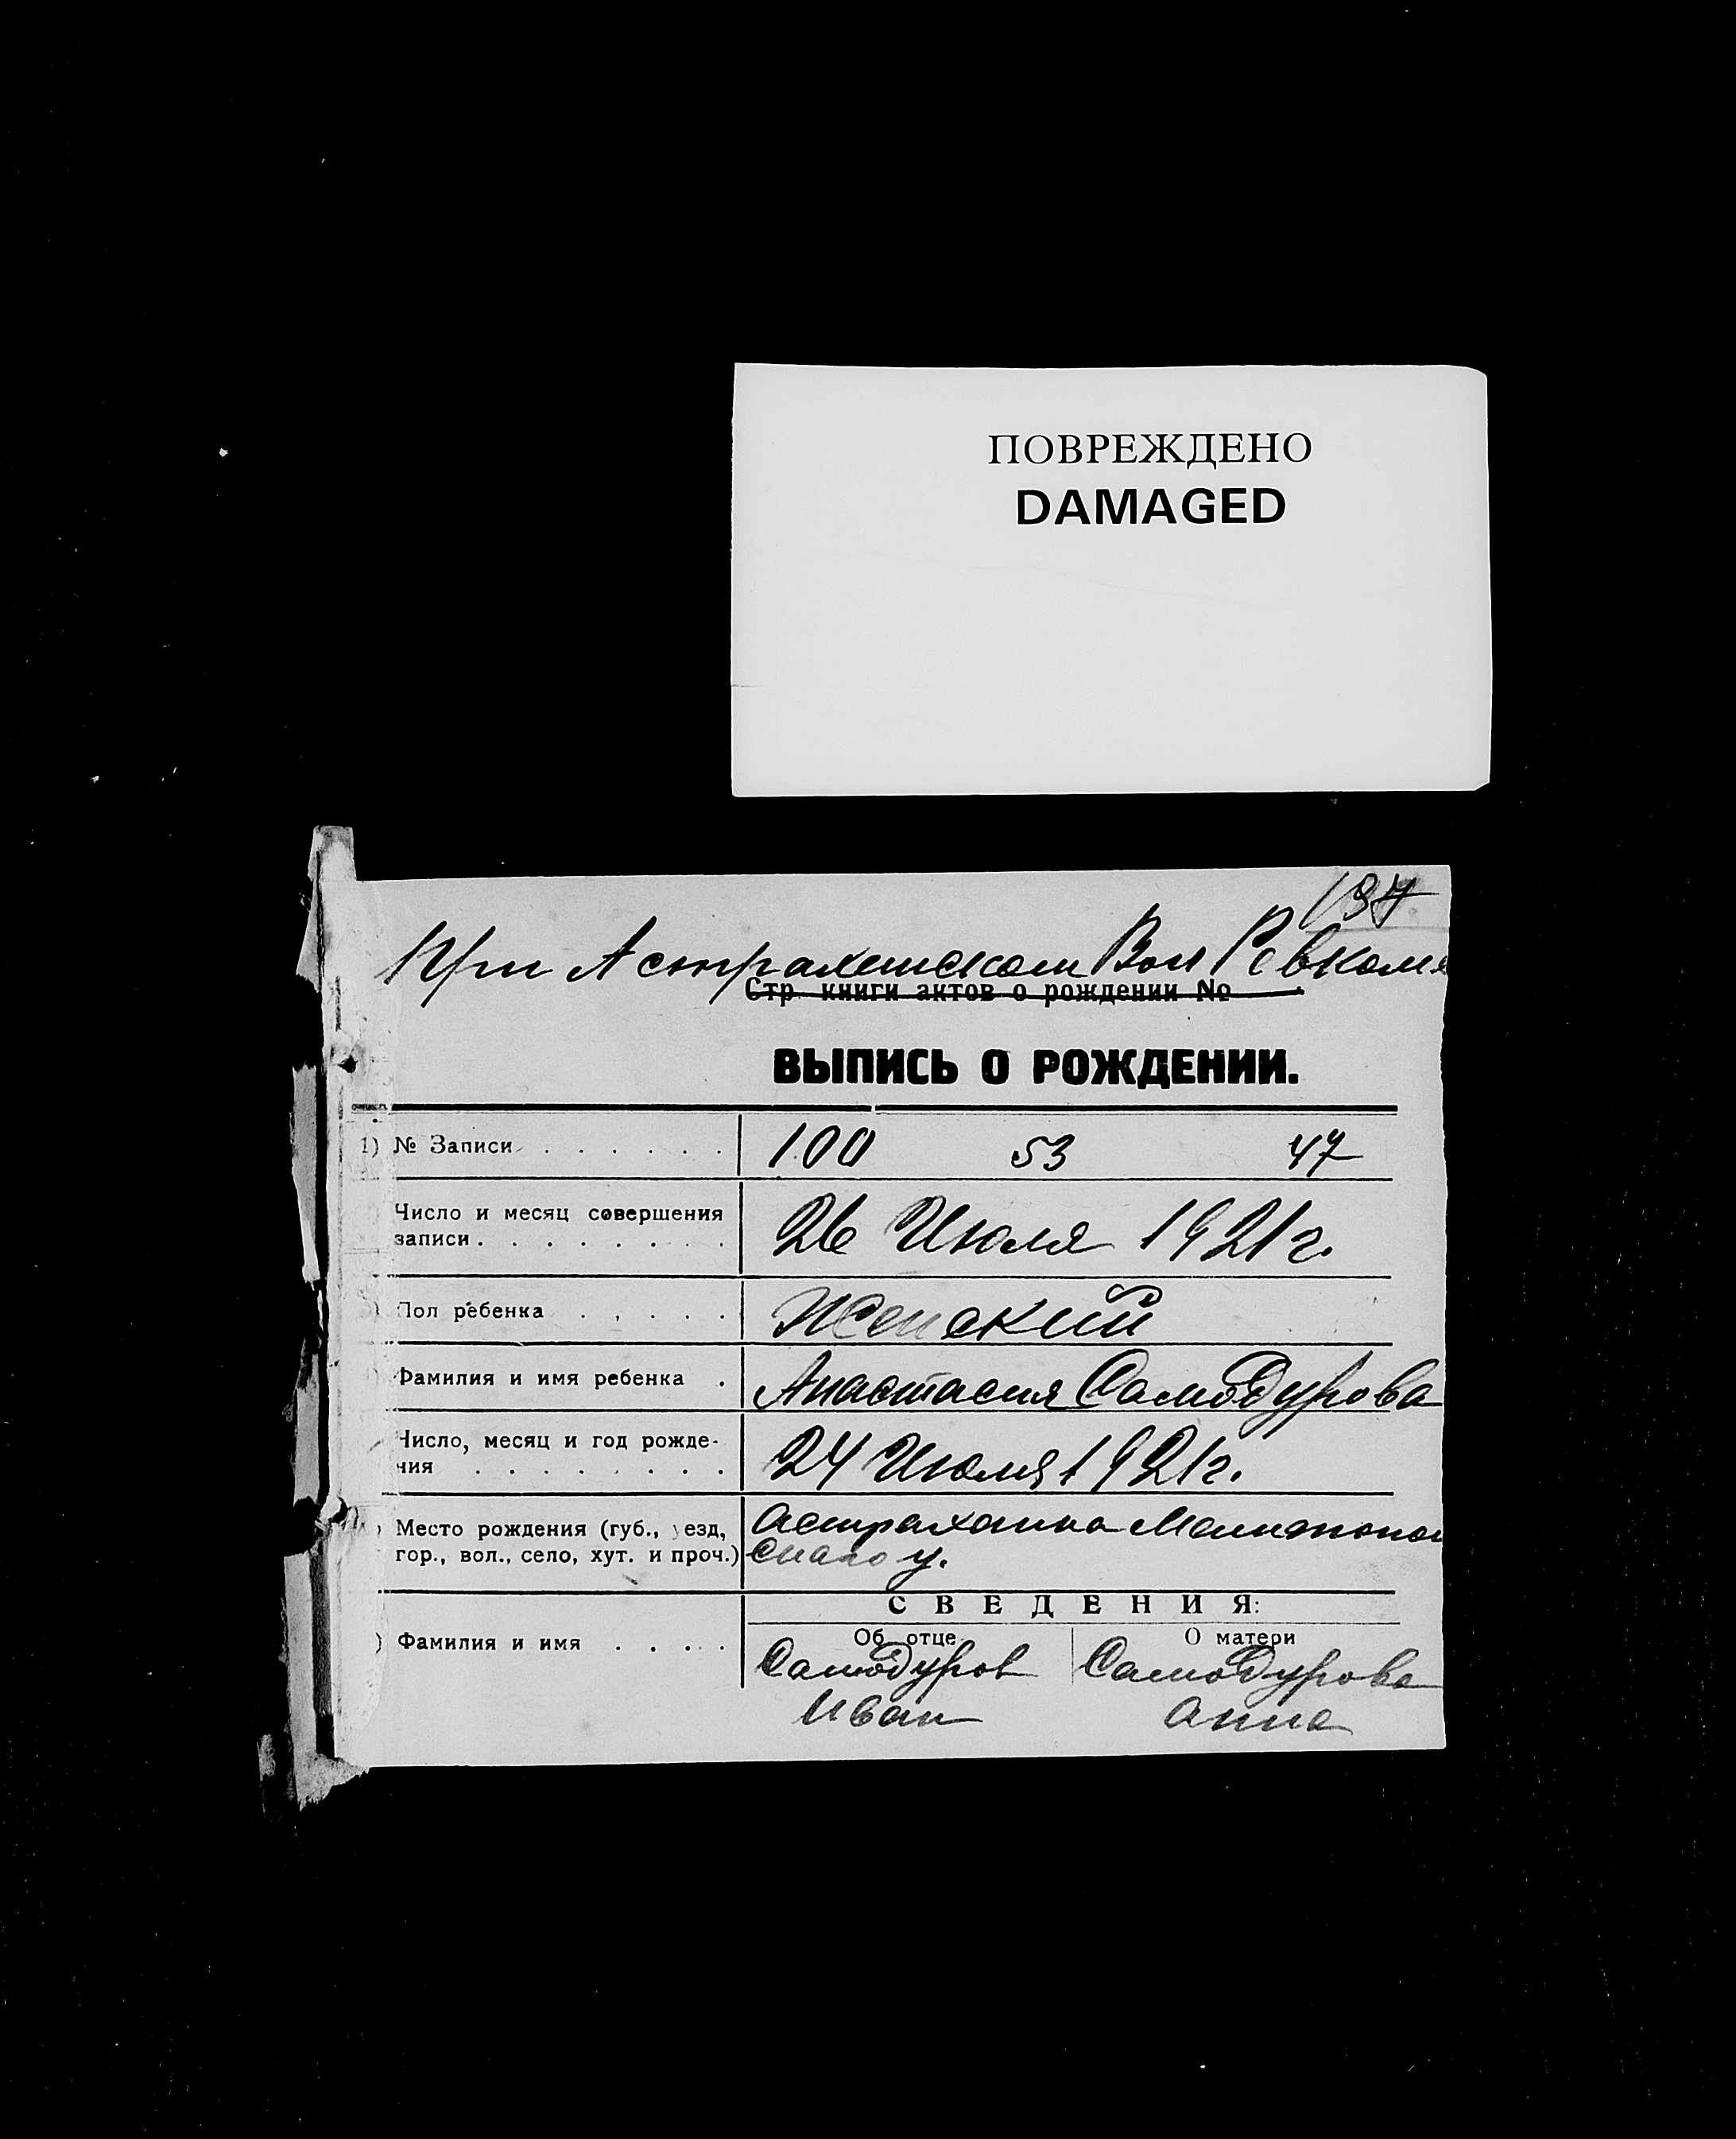 ПОВРЕЖДЕНО
DAMAGED
При Астраханском Вол Ревкоме
Стр. книги актов о рождении №
ВЫПИСЬ О РОЖДЕНИИ.
1) № Записи . . . . . . 100 53 47
Число и месяц совершения
записи . . . . . . . . 26 Июля 1921 г.
Пол ребенка . . . . . Женский
Фамилия и имя ребенка . Анастасия Самодурова
Число, месяц и год рожде-
ния . . . . . . . . 24 Июля 1921 г.
Место рождения (губ., уезд, Астраханка Мелитопол
гор., вол., село, хут. и проч.) скаго у.
СВЕДЕНИЯ:
Об отце О матери
) Фамилия и имя . . . . Самодуров Самодурова
Иван Анна